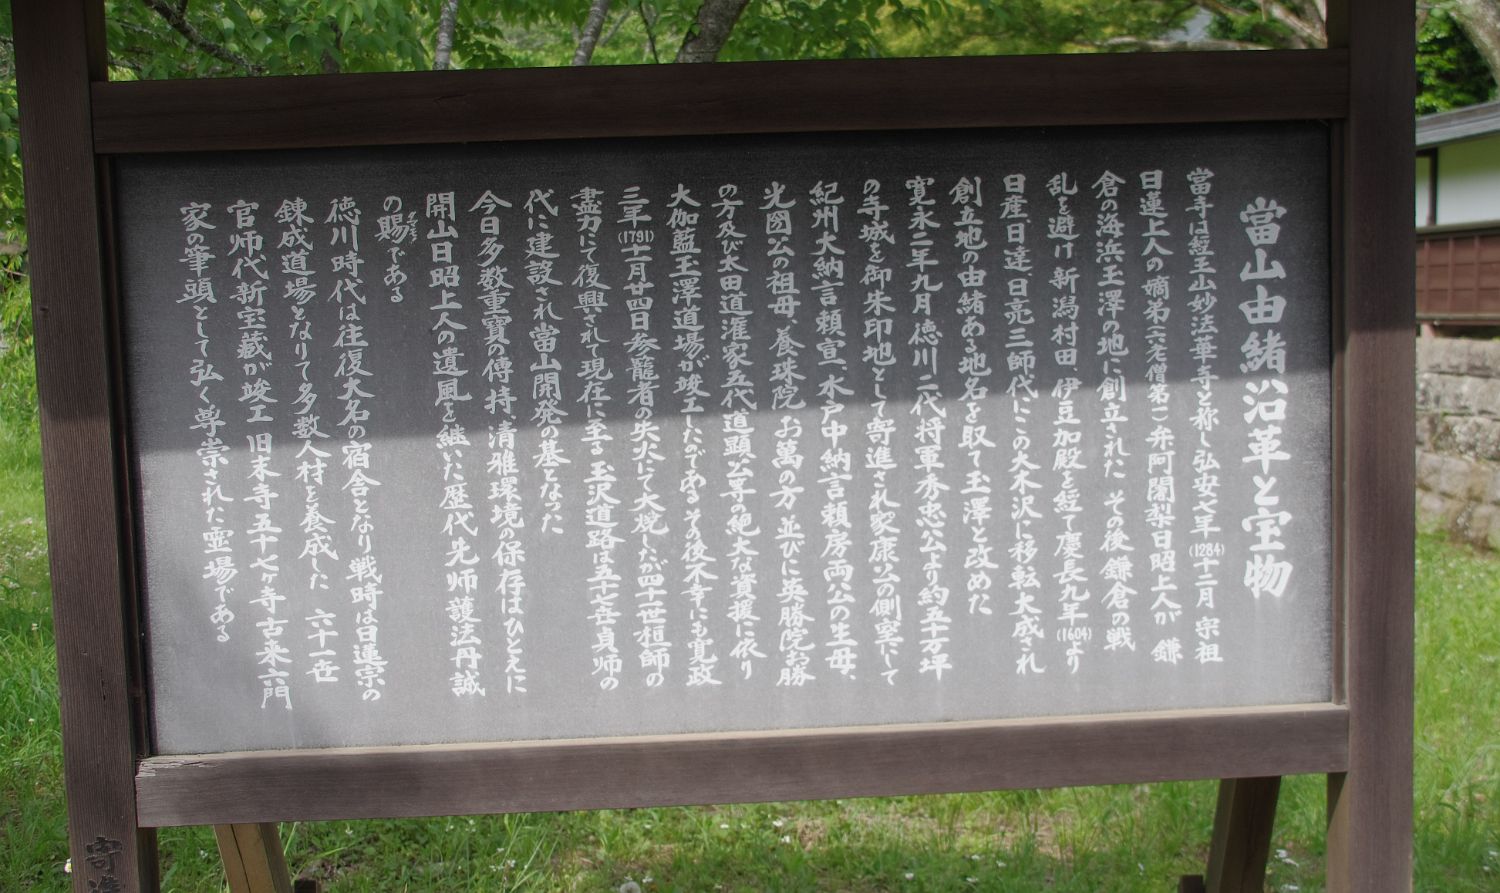 當山由緒沿革と宝物
當寺は経王山妙法華寺と称し弘安七年(1284)十二月 宗祖
日蓮上人の嫡弟(六老僧第一)弁阿闍梨日昭上人が 鎌
倉の海浜玉澤の地に創立された その後鎌倉の戦
乱を避け新潟村田、伊豆加殿を経て慶長九年(1604)より
日産、日達、日亮三師代にこの大木沢に移転大成され
創立地の由緒ある地名を取て玉澤と改めた
寛永二年九月 徳川二代将軍秀忠公より約五十万坪
の寺城を御朱印地として寄進され家康公の側室にして
紀州大納言頼宣、水戸中納言頼房両公の生母、
光圀公の祖母、養珠院 お萬の方 並びに英勝院お勝
の方及び太田道灌家五代道顕公等の絶大な資援に依り
大伽藍玉澤道場が竣工したのである その後不幸にも寛政
三年(1791)十一月廿四日参籠者の失火にて大焼したが四十一世桓師の
盡力にて復興されて現在に至る 玉沢道路は五十七世貞師の
代に建設され當山開発の基となった
今日多数重寶の傅持、清雅環境の保存はひとえに
開山日昭上人の遺風を継いだ歴代先師護法丹誠
の賜である
徳川時代は往復大名の宿舎となり戦時は日蓮宗の
錬成道場となりて多数人材を養成した 六十一世
官师代新宝蔵が竣工 旧末寺五十七ヶ寺古来六門
家の筆頭として弘く尊崇された霊場である
寄進